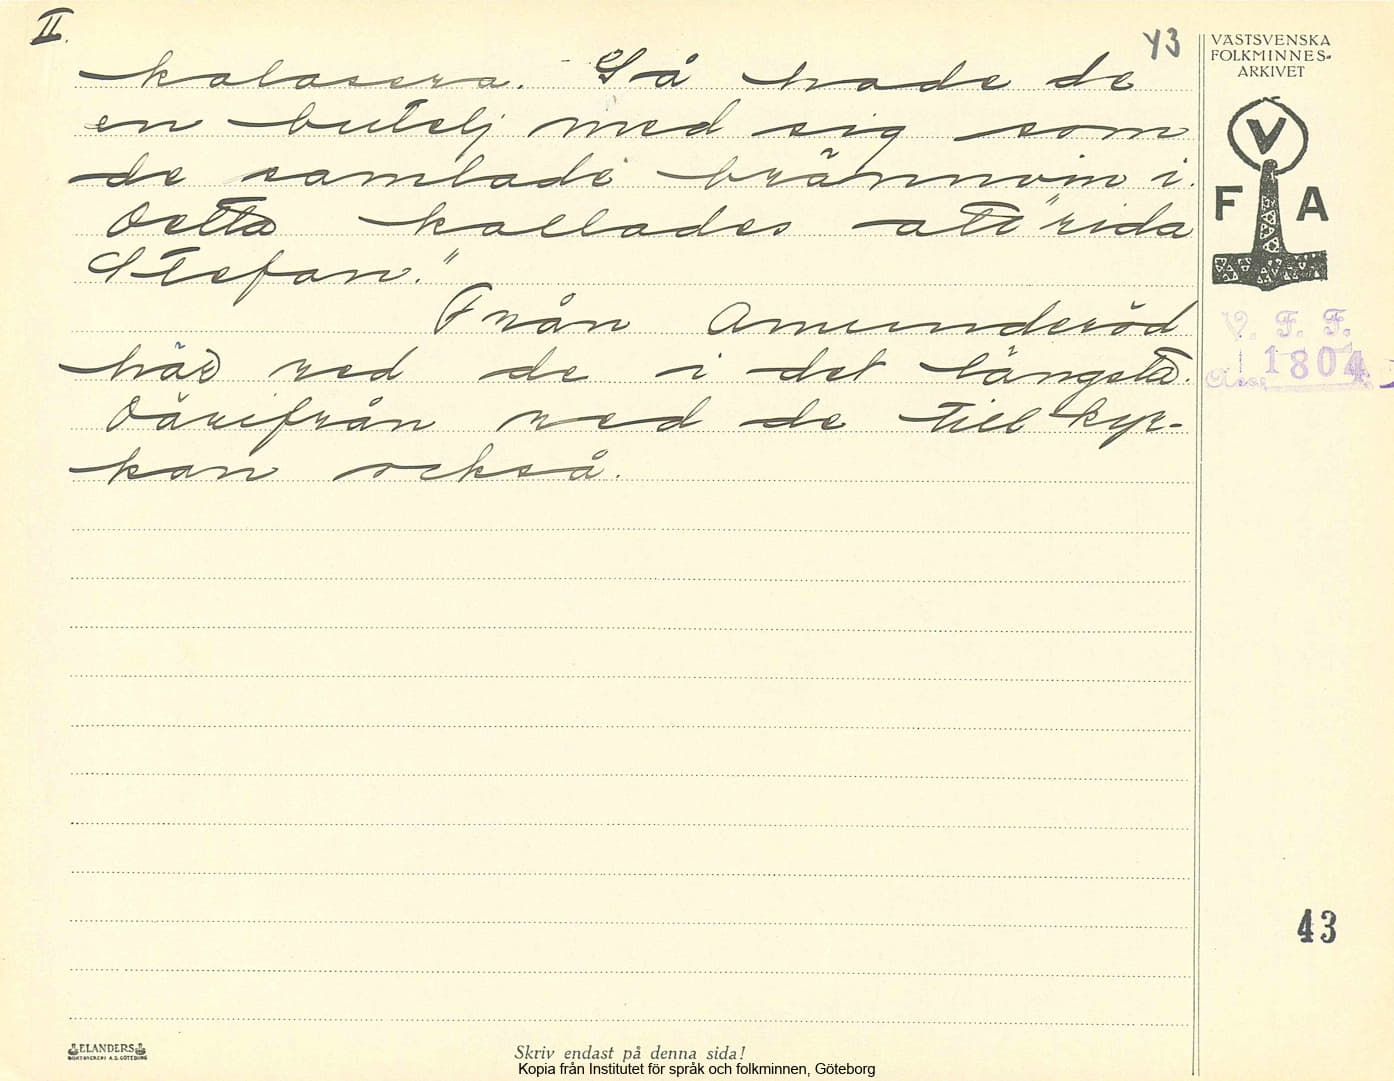 II.
43
kalasera. Så hade de
en butelj med sig som
de samlade brännvin i.
Detta kallades att "rida
Stefan."
Från Amunderöd
här red de i det längsta.
Därifrån red de till kyr-
kan också.
VÄSTSVENSKA
FOLKMINNES-
ARKIVET
V
F A
V. F. F.
1804
43
ELANDERS
BOKTRYCKERI A.B. GÖTEBORG
Skriv endast på denna sida!
Kopia från Institutet för språk och folkminnen, Göteborg